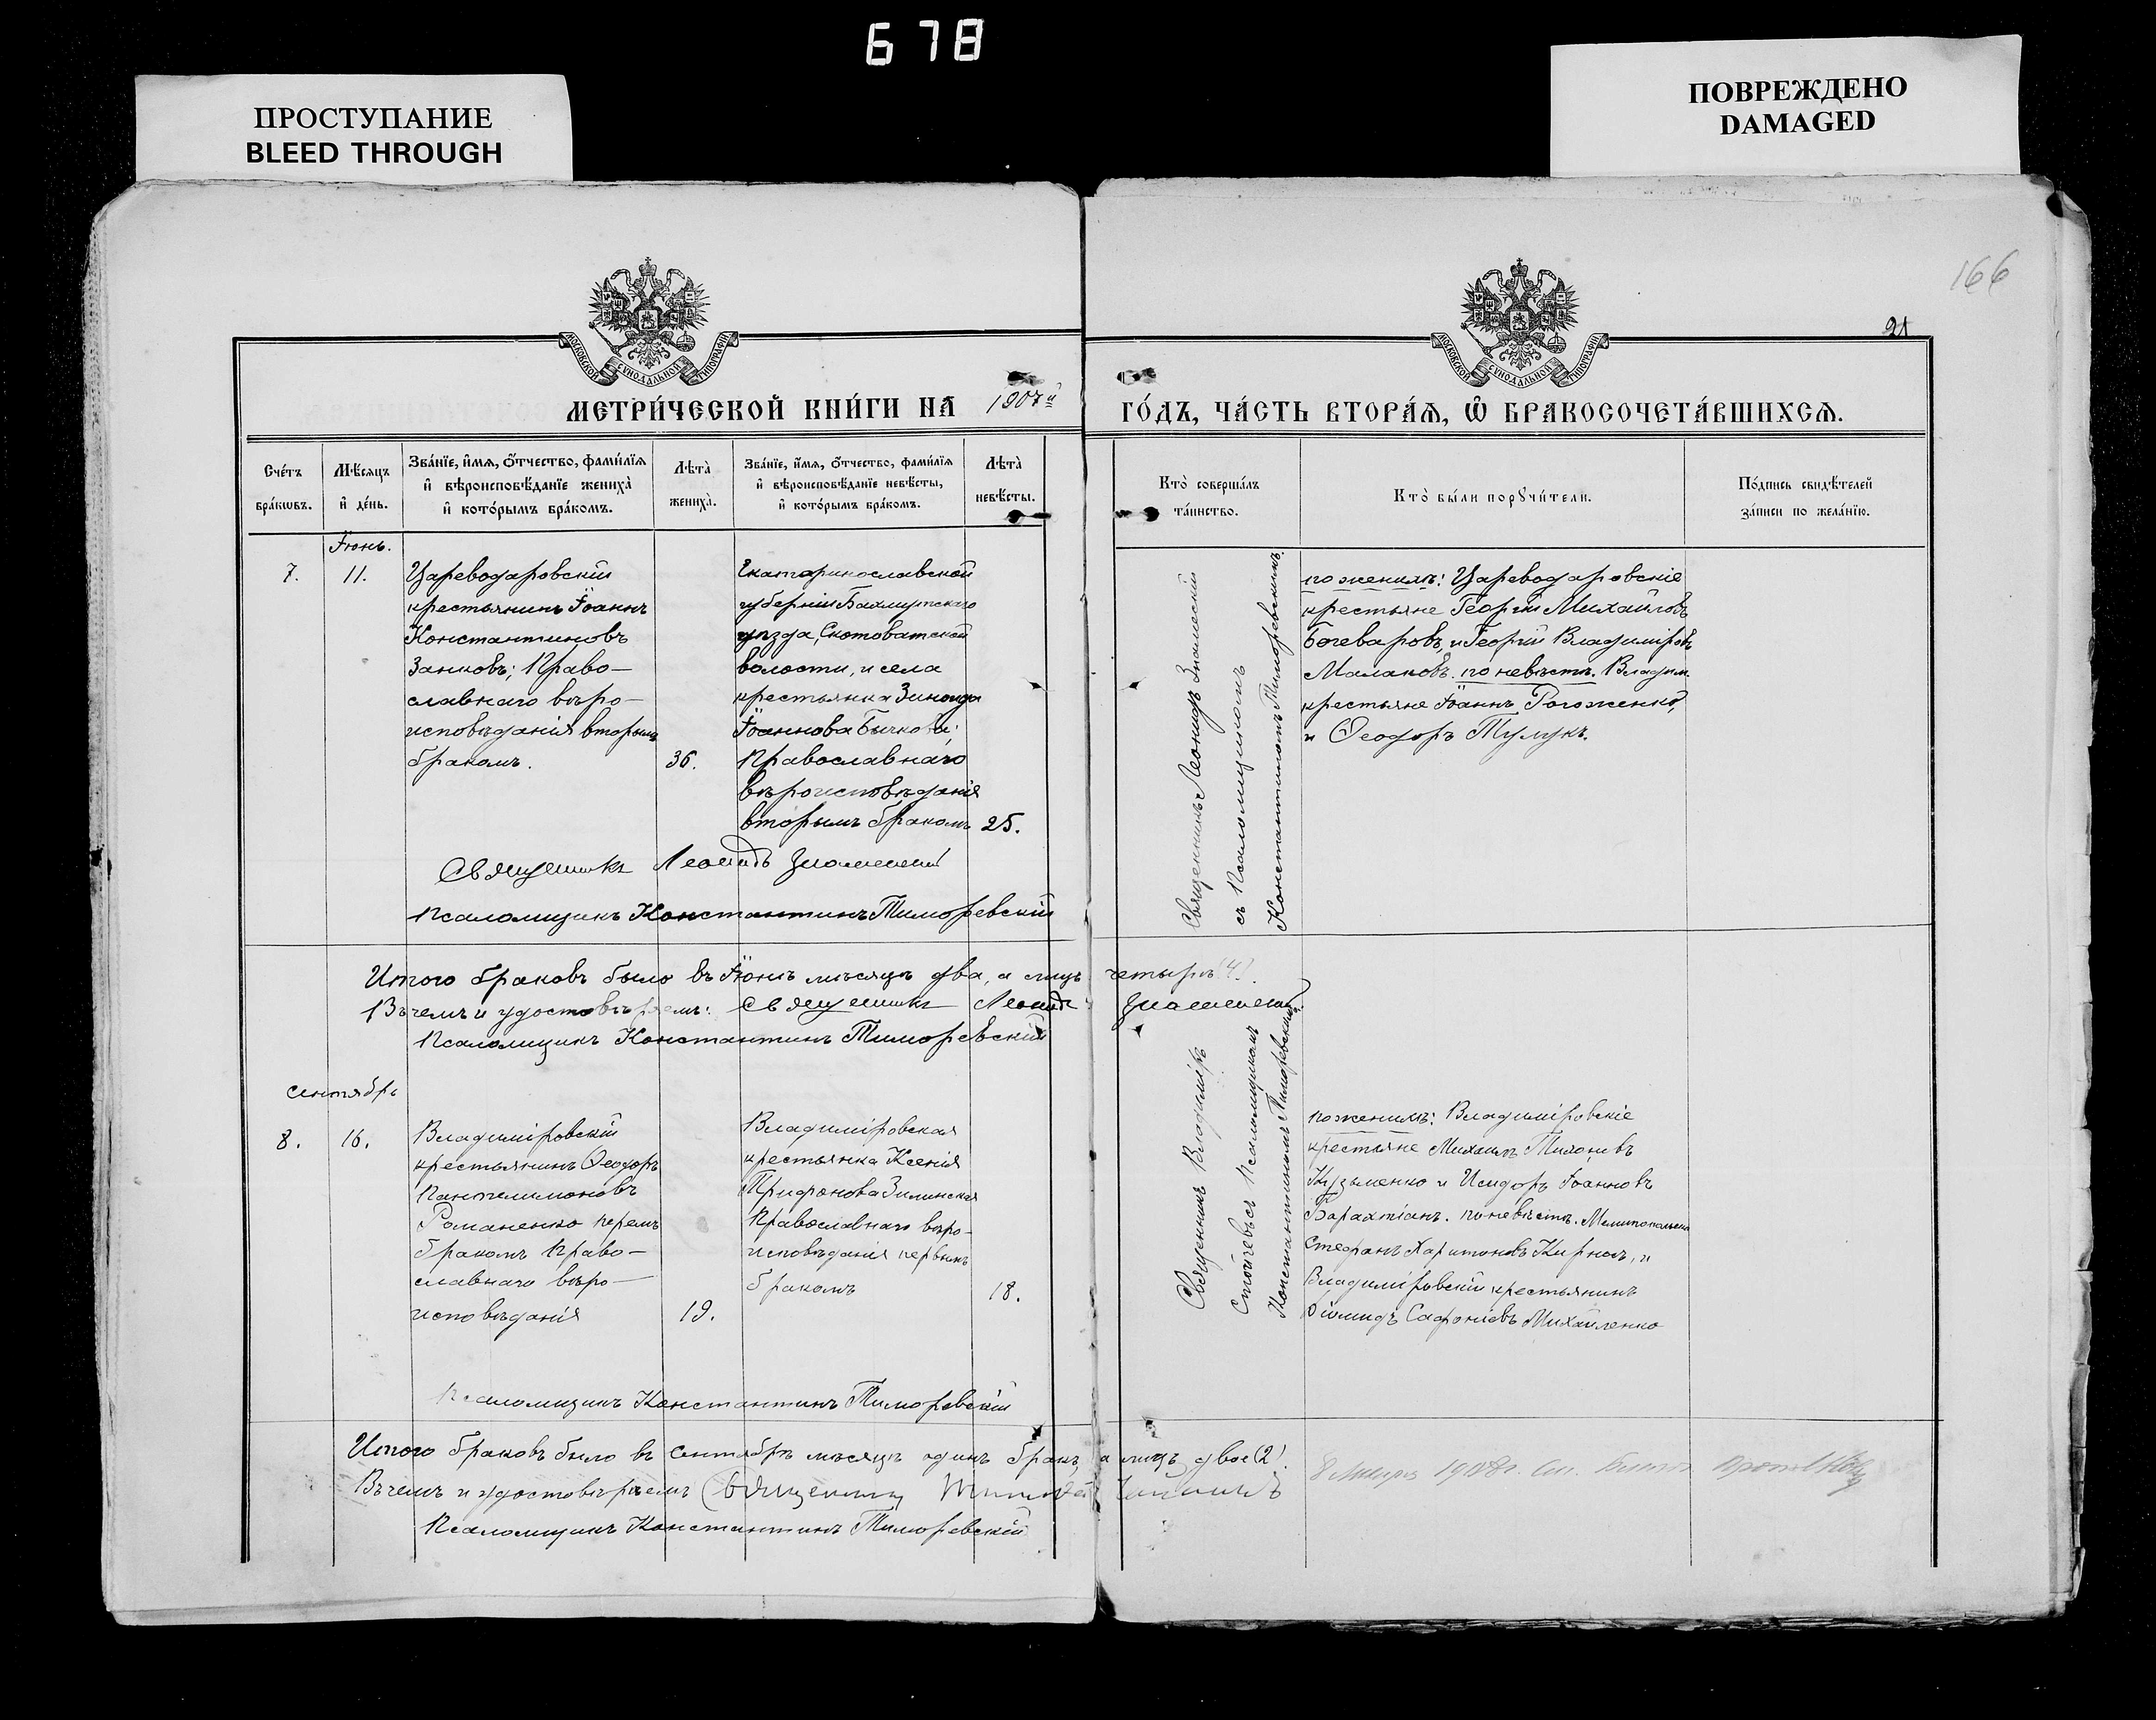 678
ПРОСТУПАНИЕ
BLEED THROUGH
ПОВРЕЖДЕНО
DAMAGED
166
21
МОСКОВСКОЙ СѴНОДАЛЬНОЙ ТИПОГРАФІИ
МОСКОВСКОЙ СѴНОДАЛЬНОЙ ТИПОГРАФІИ
МЕТРИ́ЧЕСКОЙ КНИ́ГИ НА 1907й
ГО́ДЪ, ЧА́СТЬ ВТОРА́Я, Ѡ БРАКОСОЧЕТА́ВШИХСЯ.
Сче́тъ
бра́кωвъ.
Мѣ́сяцъ
и де́нь.
Зва́нїе, и́мя, о́тчество, фамилїя
и вѣроисповѣ́данїе жениха̀
и кото́рымъ бра́комъ.
Лѣта̀
жениха̀.
Зва́нїе, и́мя, о́тчество, фамилїя
и вѣроисповѣ́данїе невѣ́сты,
и кото́рымъ бра́комъ.
Лѣта̀
невѣ́сты.
Кто̀ соверша́лъ
та́инство.
Кто̀ бы́ли порꙋчи́тели.
По́дпись свидѣ́телей
за́писи по жела́нїю.
Іюнь.
7.
11.
Цареводаровскій
крестьянинъ Іоаннъ
Константиновъ
Занковъ; Право-
славнаго вѣро-
исповѣданія вторымъ
бракомъ.
36.
Екатаринославской
губерніи Бахмутскаго
уѣзда, Скотоватской
волости, и села
крестьянка Зинаида
Іоаннова Бычкова;
Православнаго
вѣроисповѣданія
вторымъ бракомъ
25.
Священникъ Леонидъ Знаменскій
съ Псаломщикомъ
Константиномъ Тиморевскимъ.
по женихѣ: Цареводаровскіе
крестьяне Георгій Михайловъ
Бочеваровъ, и Георгій Владиміровъ
Малаковъ. по невѣстѣ. Владим.
крестьяне Іоаннъ Рогоженко,
и Ѳеодоръ Тулукъ.
Священникъ Леонидъ Знаменскій
Псаломщикъ Константинъ Тиморевскій
Итого браковъ было въ Іюнѣ мѣсяцѣ два, а лицъ четырѣ (4).
Въ чемъ и удостовѣряемъ: Священникъ Леонидъ Знаменскій.
Псаломщикъ Константинъ Тиморевскій
Сентябрь
8.
16.
Владиміровскій
крестьянинъ Ѳеодоръ
Пантелимоновъ
Романенко первымъ
бракомъ Право-
славнаго вѣро-
исповѣданія
19.
Владиміровская
крестьянка Ксенія
Трифонова Зилинская
Православнаго вѣро-
исповѣданія первымъ
бракомъ
18.
Священникъ Владиміръ
Стойчевъ съ Псаломщикомъ
Константиномъ Тиморевскимъ.
по женихѣ: Владиміровскіе
крестьяне Михаилъ Тихоновъ
Кузьменко и Исидоръ Іоанновъ
Варахтіанъ. по невѣстѣ.
Стефанъ Харитоновъ и
Владиміровскій крестьянинъ
Діомидъ Сафоніевъ Михайленко
Псаломщикъ Константинъ Тиморевскій
Итого браковъ было въ Сентябрѣ мѣсяцѣ одинъ бракъ, а лицъ двое (2).
Въ чемъ и удостовѣряемъ Священникъ
Псаломщикъ Константинъ Тиморевскій